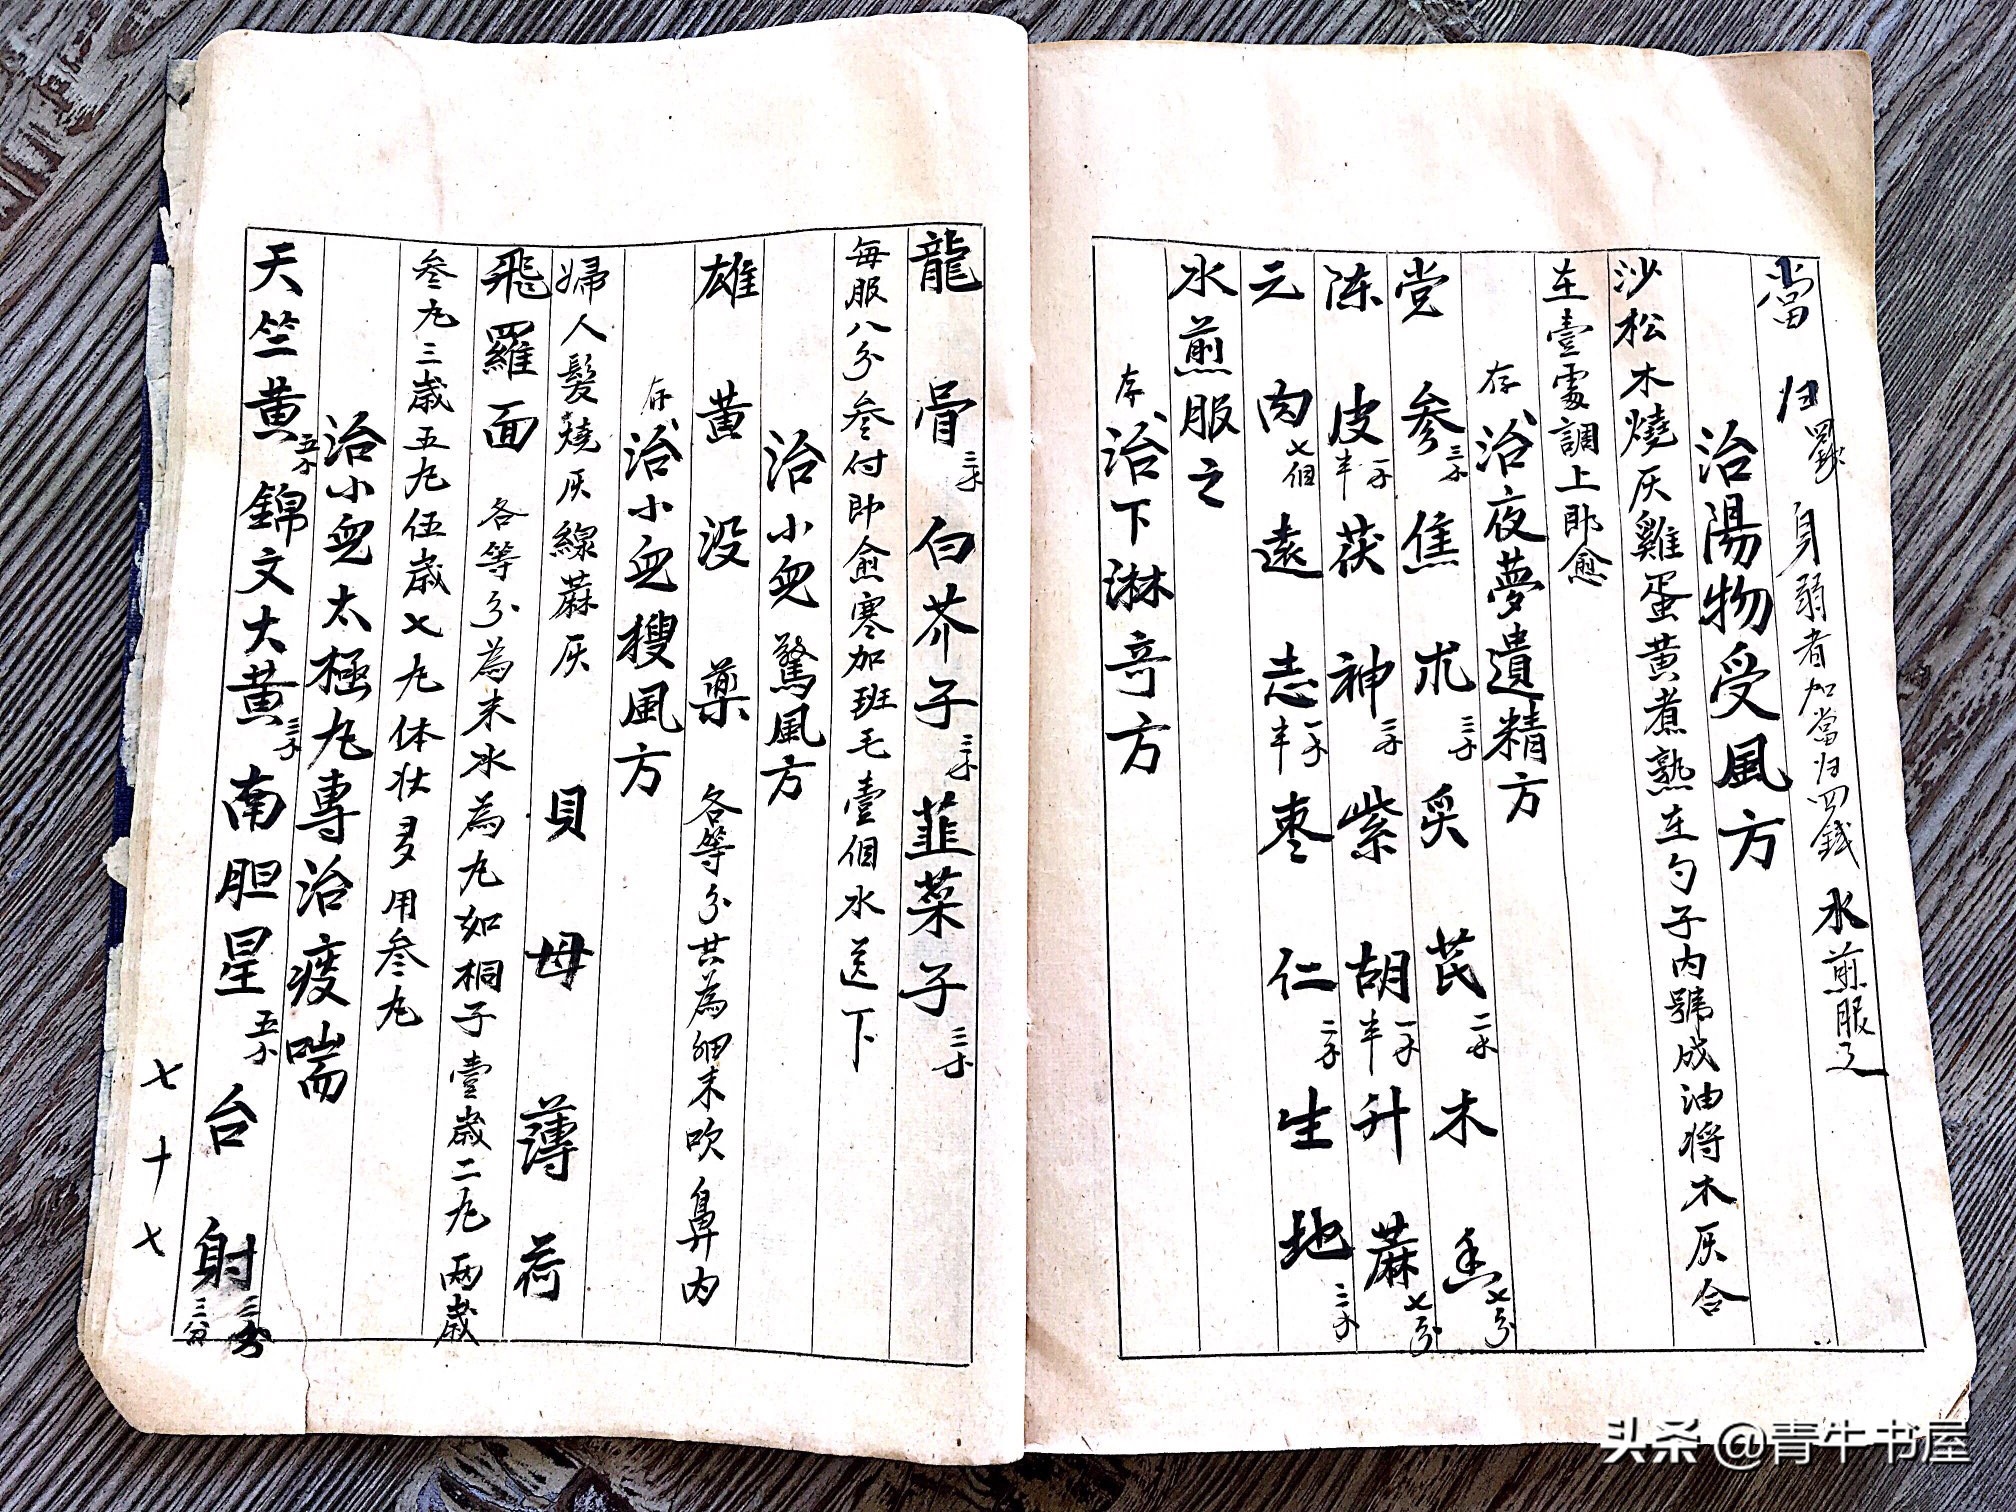 當归四錢 身弱者加當归四錢 水煎服之
治陽物受風方
沙松木燒灰雞蛋黄煮熟在勺子内號成油将木灰合
在壹處調上即愈
存 治夜夢遺精方
党参三 焦朮三 炙芪二 木香七分
陈皮一半 茯神三 紫胡一半 升蔴七分
元肉七個 遠志一半 枣仁二 生地三
水煎服之
存 治下淋竒方
龍骨三 白芥子三 韮菜子三
每服八分叁付即愈寒加班毛壹個水送下
治小兒驚風方
雄黄 没藥 各等分共為細末吹鼻内
存 治小兒搜風方
婦人髮燒灰 線蔴灰 貝母 薄荷
飛羅面 各等分為末水為丸如桐子壹歲二丸两歲
叁丸三歲五丸伍歲七丸体壮多用叁丸
治小兒太極丸專治痰喘
天竺黄五 錦文大黄三 南胆星五 台射三分
七十七
头条 @青牛书屋